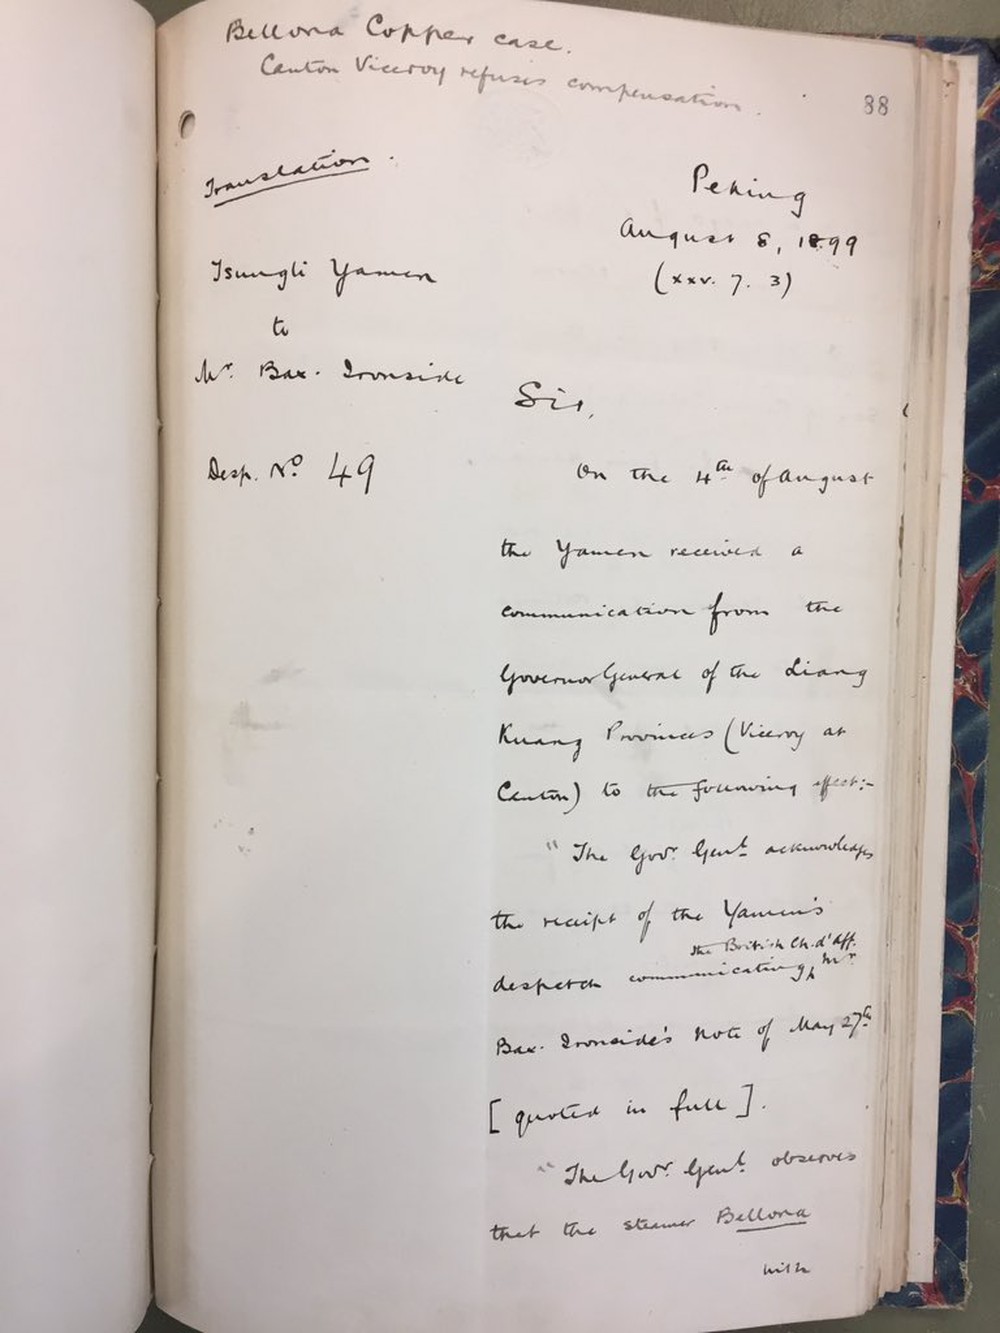 Bellona Copper case.
Canton Viceroy refuses compensation.
88
Translation.
Peking
August 8, 1899
(xxv. 7. 3)
Tsungli Yamen
to
Mr. Bax-Ironside
Sir,
Desp. No. 49
On the 4th of August
the Yamen received a
communication from the
Governor General of the Liang
Kuang Provinces (Viceroy at
Canton) to the following effect:-
"The Govr. Genl. acknowledges
the receipt of the Yamen's
the British Ch. d'Aff.
despatch communicating, Mr.
Bax-Ironside's Note of May 27th
[quoted in full].
"The Govr. Genl. observes
that the steamer Bellona
with